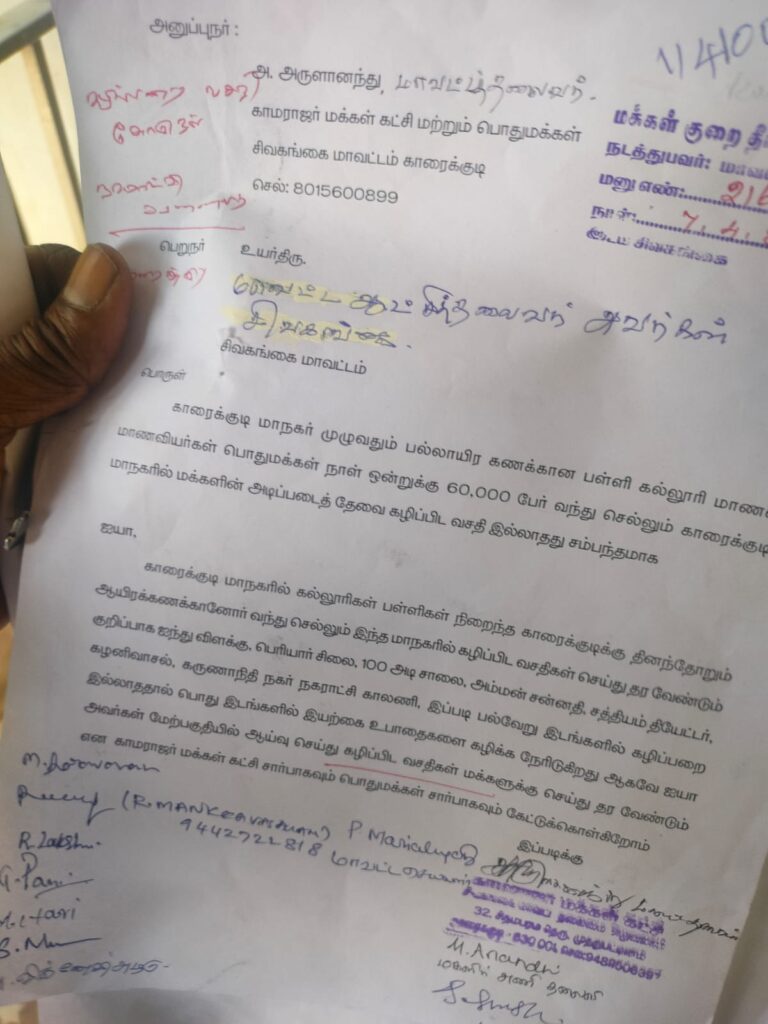 அனுப்புநர் :
அ. அருளானந்து, மாவட்டத்தலைவர்.
காமராஜர் மக்கள் கட்சி மற்றும் பொதுமக்கள்
சிவகங்கை மாவட்டம் காரைக்குடி
செல்: 8015600899
மக்கள் குறை தீ
நடத்துபவர்: மாவ
மனு எண்:
நாள்: 7.4.
பெறுநர்
உயர்திரு.
மாவட்ட ஆட்சித்தலைவர் அவர்கள்
சிவகங்கை.
சிவகங்கை மாவட்டம்
பொருள்
காரைக்குடி மாநகர் முழுவதும் பல்லாயிர கணக்கான பள்ளி கல்லூரி மாண
மாணவியர்கள் பொதுமக்கள் நாள் ஒன்றுக்கு 60,000 பேர் வந்து செல்லும் காரைக்குடி
மாநகரில் மக்களின் அடிப்படைத் தேவை கழிப்பிட வசதி இல்லாதது சம்பந்தமாக
ஐயா,
காரைக்குடி மாநகரில் கல்லூரிகள் பள்ளிகள் நிறைந்த காரைக்குடிக்கு தினந்தோறும்
ஆயிரக்கணக்கானோர் வந்து செல்லும் இந்த மாநகரில் கழிப்பிட வசதிகள் செய்து தர வேண்டும்
குறிப்பாக ஐந்து விளக்கு, பெரியார் சிலை, 100 அடி சாலை, அம்மன் சன்னதி, சத்தியம் தியேட்டர்,
கழனிவாசல், கருணாநிதி நகர் நகராட்சி காலணி, இப்படி பல்வேறு இடங்களில் கழிப்பறை
இல்லாததால் பொது இடங்களில் இயற்கை உபாதைகளை கழிக்க நேரிடுகிறது ஆகவே ஐயா
அவர்கள் மேற்பகுதியில் ஆய்வு செய்து கழிப்பிட வசதிகள் மக்களுக்கு செய்து தர வேண்டும்
என காமராஜர் மக்கள் கட்சி சார்பாகவும் பொதுமக்கள் சார்பாகவும் கேட்டுக்கொள்கிறோம்
இப்படிக்கு
(R.MANICKAVASAGAM)
9442722818 மாவட்ட செயலாளர்
காமராஜர் மக்கள் கட்சி
R. Lakshi
G. Pani
M. Hari
M. Anandhi
மகளிர் அணி தலைவி